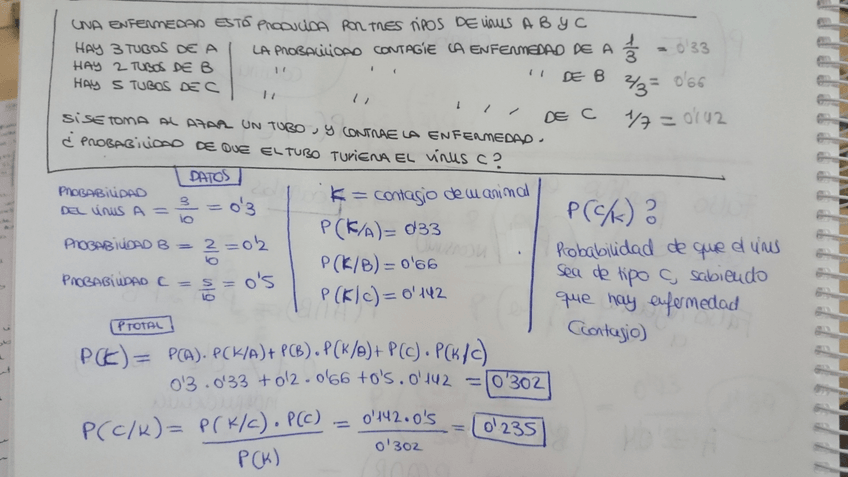 UNA ENFERMEDAD ESTÁ PRODUCIDA POR TRES TIPOS DE VIRUS A B Y C
HAY 3 TUBOS DE A | LA PROBABILIDAD CONTAGIE LA ENFERMEDAD DE A 1/3 = 0'33
HAY 2 TUBOS DE B | " " " DE B 2/3 = 0'66
HAY 5 TUBOS DE C | " " " DE C 1/7 = 0'142
SI SE TOMA AL AZAR UN TUBO, Y CONTRAE LA ENFERMEDAD.
¿ PROBABILIDAD DE QUE EL TUBO TUVIERA EL VIRUS C?
DATOS
PROBABILIDAD
DEL VIRUS A = 3/10 = 0'3
PROBABILIDAD B = 2/10 = 0'2
PROBABILIDAD C = 5/10 = 0'5
K = contagio de un animal
P(K/A) = 0'33
P(K/B) = 0'66
P(K/C) = 0'142
P(C/K)?
Probabilidad de que el virus
sea de tipo C, sabiendo
que hay enfermedad
(contagio)
PTOTAL
P(K) = P(A)·P(K/A)+P(B)·P(K/B)+P(C)·P(K/C)
0'3·0'33+0'2·0'66+0'5·0'142 = 0'302
P(C/K) = P(K/C)·P(C) / P(K) = 0'142·0'5 / 0'302 = 0'235